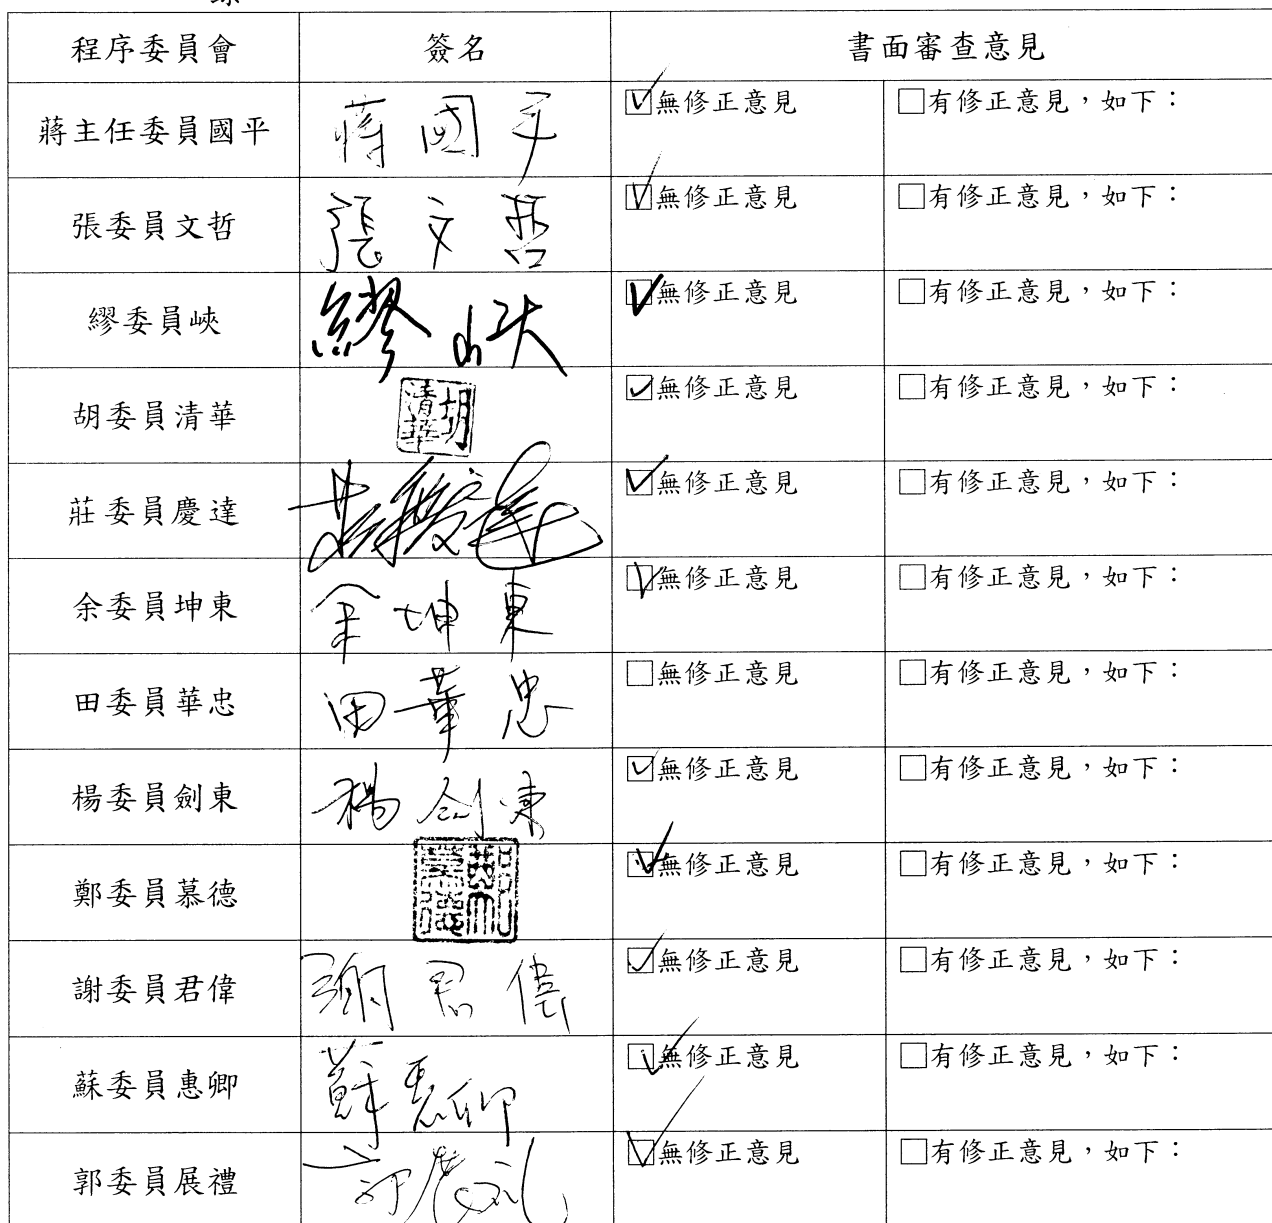 程序委員會 簽名 書面審查意見
蔣主任委員國平 蔣國平 ☑無修正意見 □有修正意見,如下:
張委員文哲 張文哲 ☑無修正意見 □有修正意見,如下:
繆委員峽 繆峽 ☑無修正意見 □有修正意見,如下:
胡委員清華 胡清華 ☑無修正意見 □有修正意見,如下:
莊委員慶達 莊慶達 ☑無修正意見 □有修正意見,如下:
余委員坤東 余坤東 ☑無修正意見 □有修正意見,如下:
田委員華忠 田華忠 □無修正意見 □有修正意見,如下:
楊委員劍東 楊劍東 ☑無修正意見 □有修正意見,如下:
鄭委員慕德 鄭慕德 ☑無修正意見 □有修正意見,如下:
謝委員君偉 謝君偉 ☑無修正意見 □有修正意見,如下:
蘇委員惠卿 蘇惠卿 ☑無修正意見 □有修正意見,如下:
郭委員展禮 郭展礼 ☑無修正意見 □有修正意見,如下: